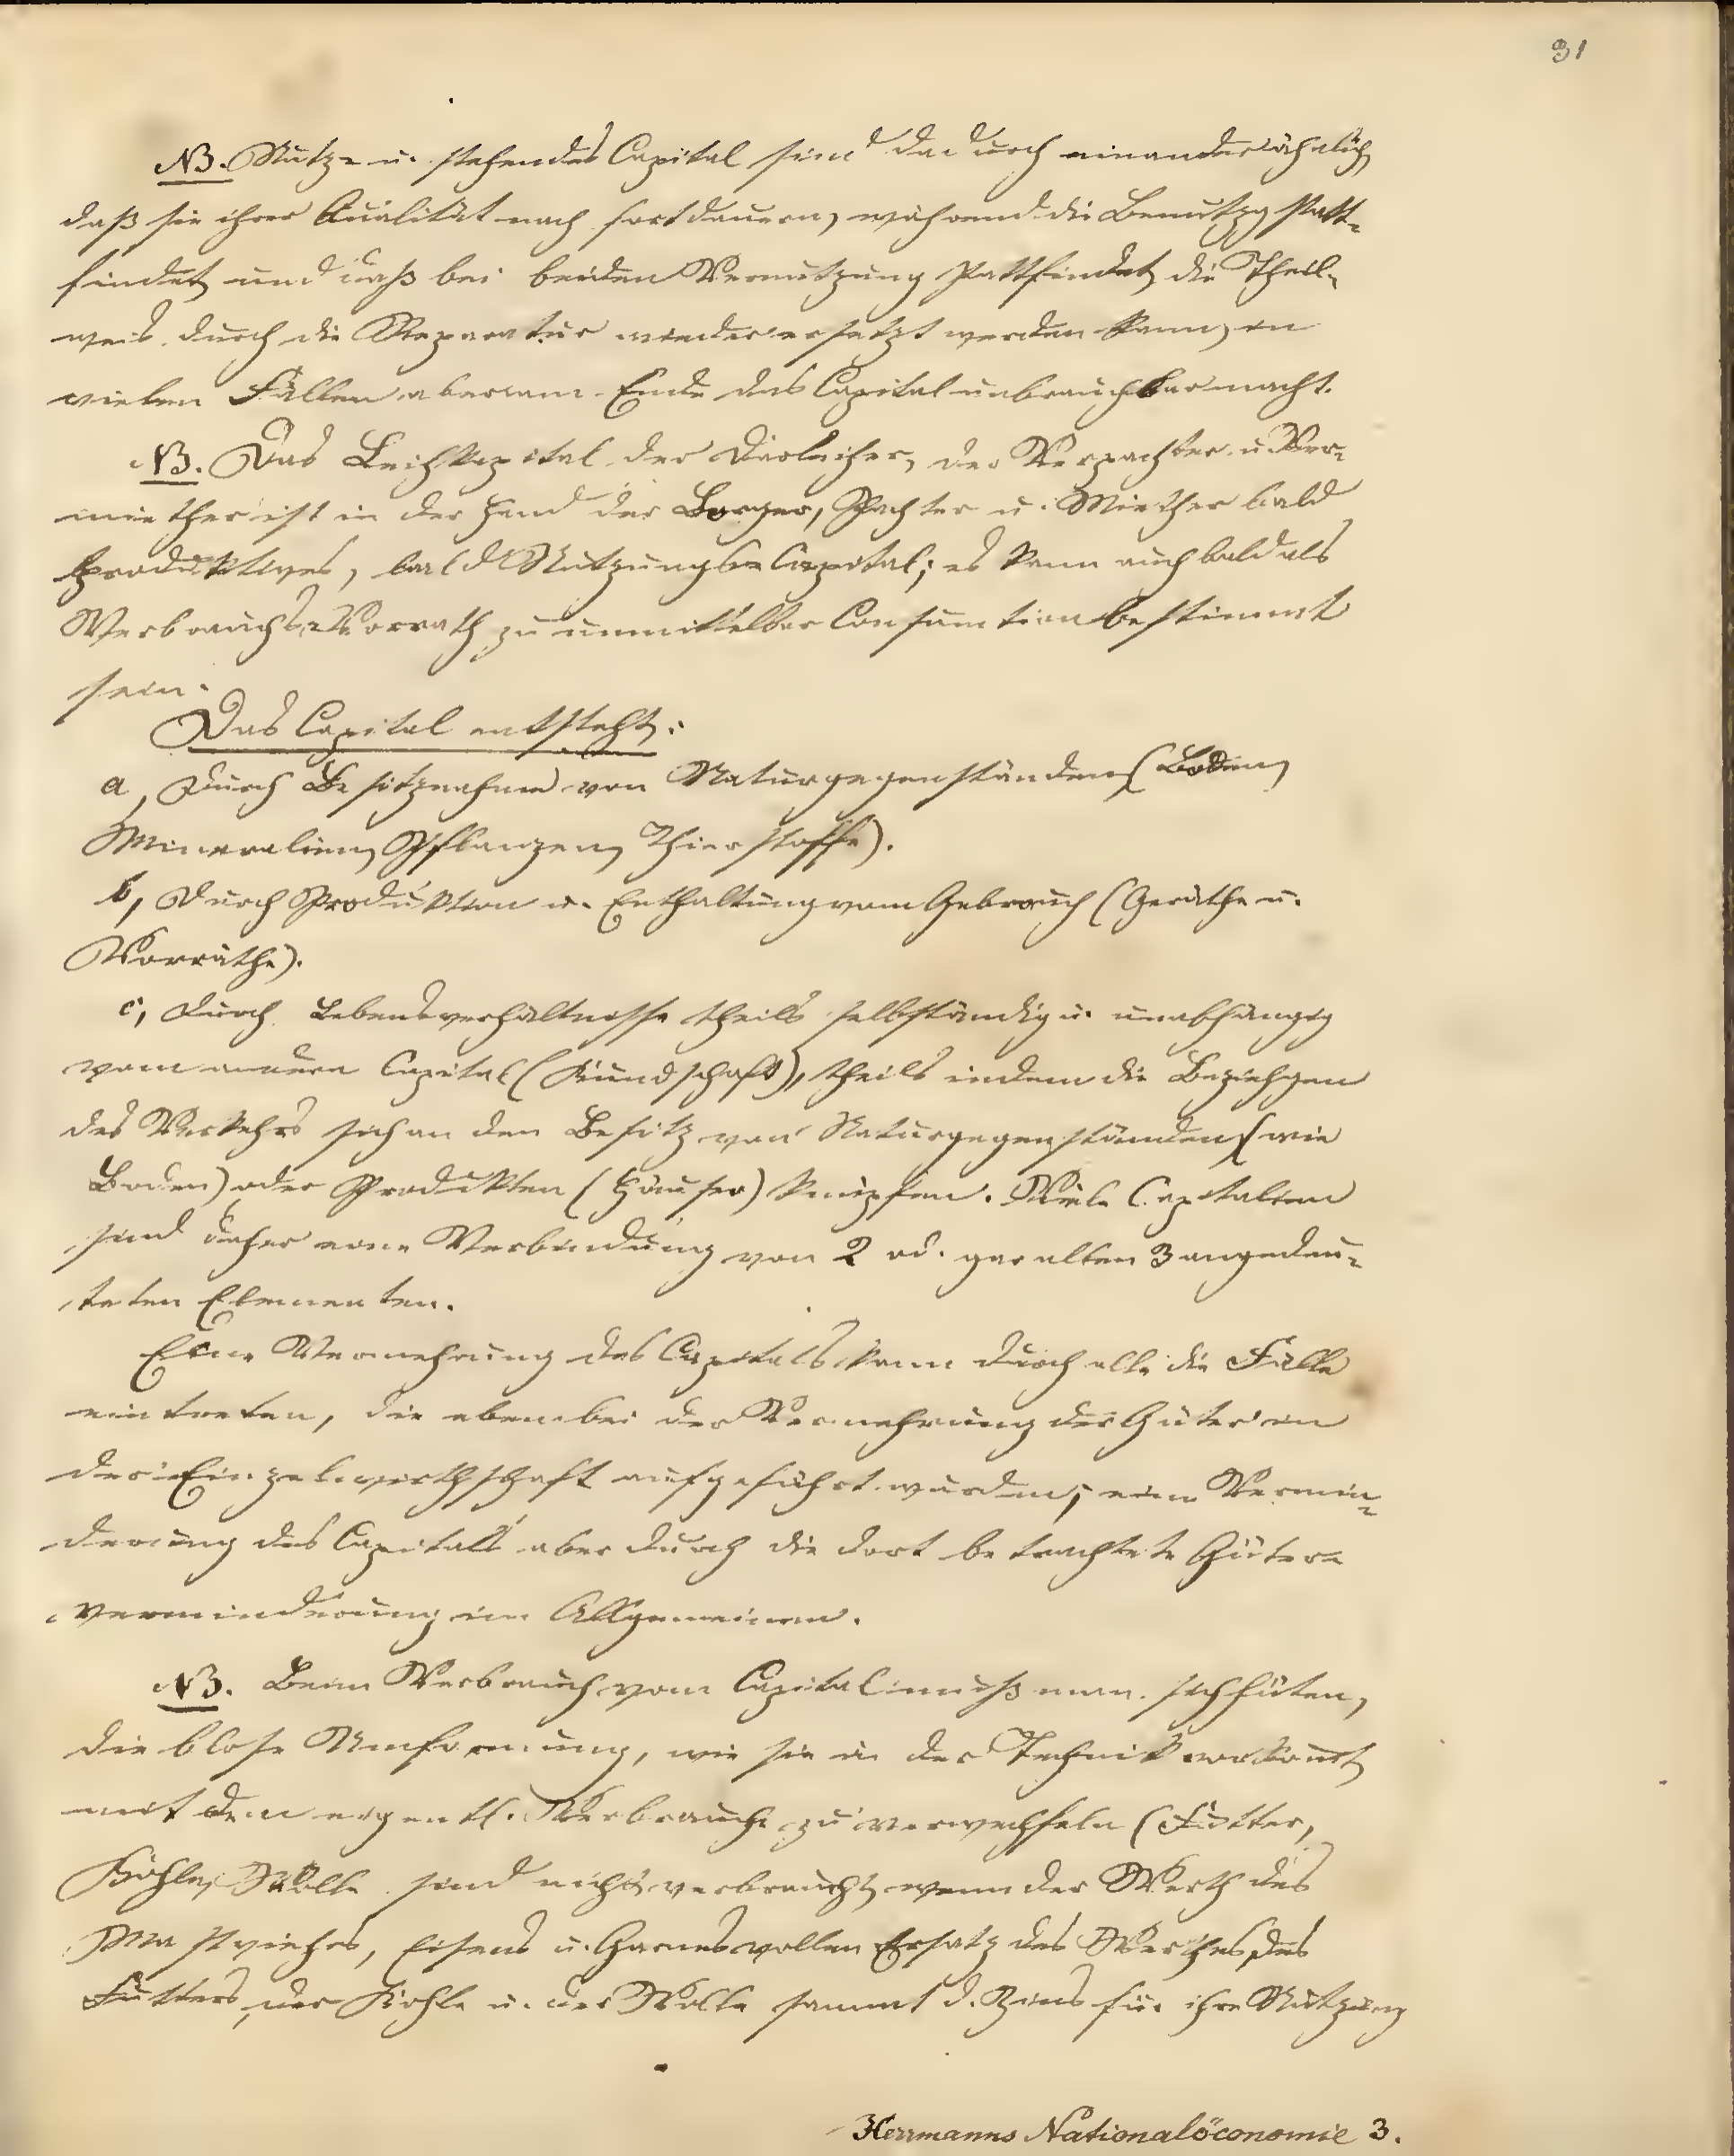 31
NB. Nutz- u. stehendes Capital sind dadurch einander ähnlich,
daß sie ihrer Qualität nach fortdauern, während die Benutzg statt-
findet und daß bei beiden Vernutzung stattfindet, die Theil-
weis durch die Reparatur wieder ersetzt werden kann, in
vielen Fällen aber am Ende das Capital unbrauchbar macht.
NB. Das Leihkapital der Darleiher, der Verpachter u. Ver-
miether ist in der Hand der Borger, Pachter u. Miether bald
produktives, bald Nutzungs-Capital; es kann auch bald als
Verbrauchs-Vorrath zu unmittelbar Consumtion bestimmt
sein.
Das Capital entsteht:
a, Durch Besitznahme von Naturgegenständen (Boden,
Mineralien, Pflanzen, Thierstoffe).
b, Durch Produktion u. Enthaltung vom Gebrauch (Geräthe u.
Vorräthe).
c, Durch Lebensverhältnisse theils selbständig u. unabhängig
vom Capital (Kundschaft), theils indem die Beziehgen
des Verkehrs sich an den Besitz von Naturgegenständen (wie
Boden) oder Produkten (Häuser) knüpfen. Viele Capitalien
sind daher eine Verbindung von 2 od. gar allen 3 angedeu-
teten Elementen.
Eine Vermehrung des Capitals kann durch alle die Fälle
eintreten, die eben bei der Vermehrung der Güter in
der Einzelwirthschaft aufgeführt wurden; eine Vermin-
derung des Capitals aber durch die dort betrachtete Güter-
verminderung im Allgemeinen.
NB. Beim Verbrauch vom Capital muß man sich hüten,
die blose Umformung, wie sie in der Technik vorkomt,
mit dem eigentl. Verbrauche zu verwechseln (Futter,
Kohle, Wolle sind nicht verbraucht, wenn der Werth des
Mastviehes, Eisens u. Garnes vollen Ersatz des Werthes des
Futters, der Kohle u. der Wolle sammt d. Zins für ihre Nutzung
Herrmanns Nationalöconomie 3.